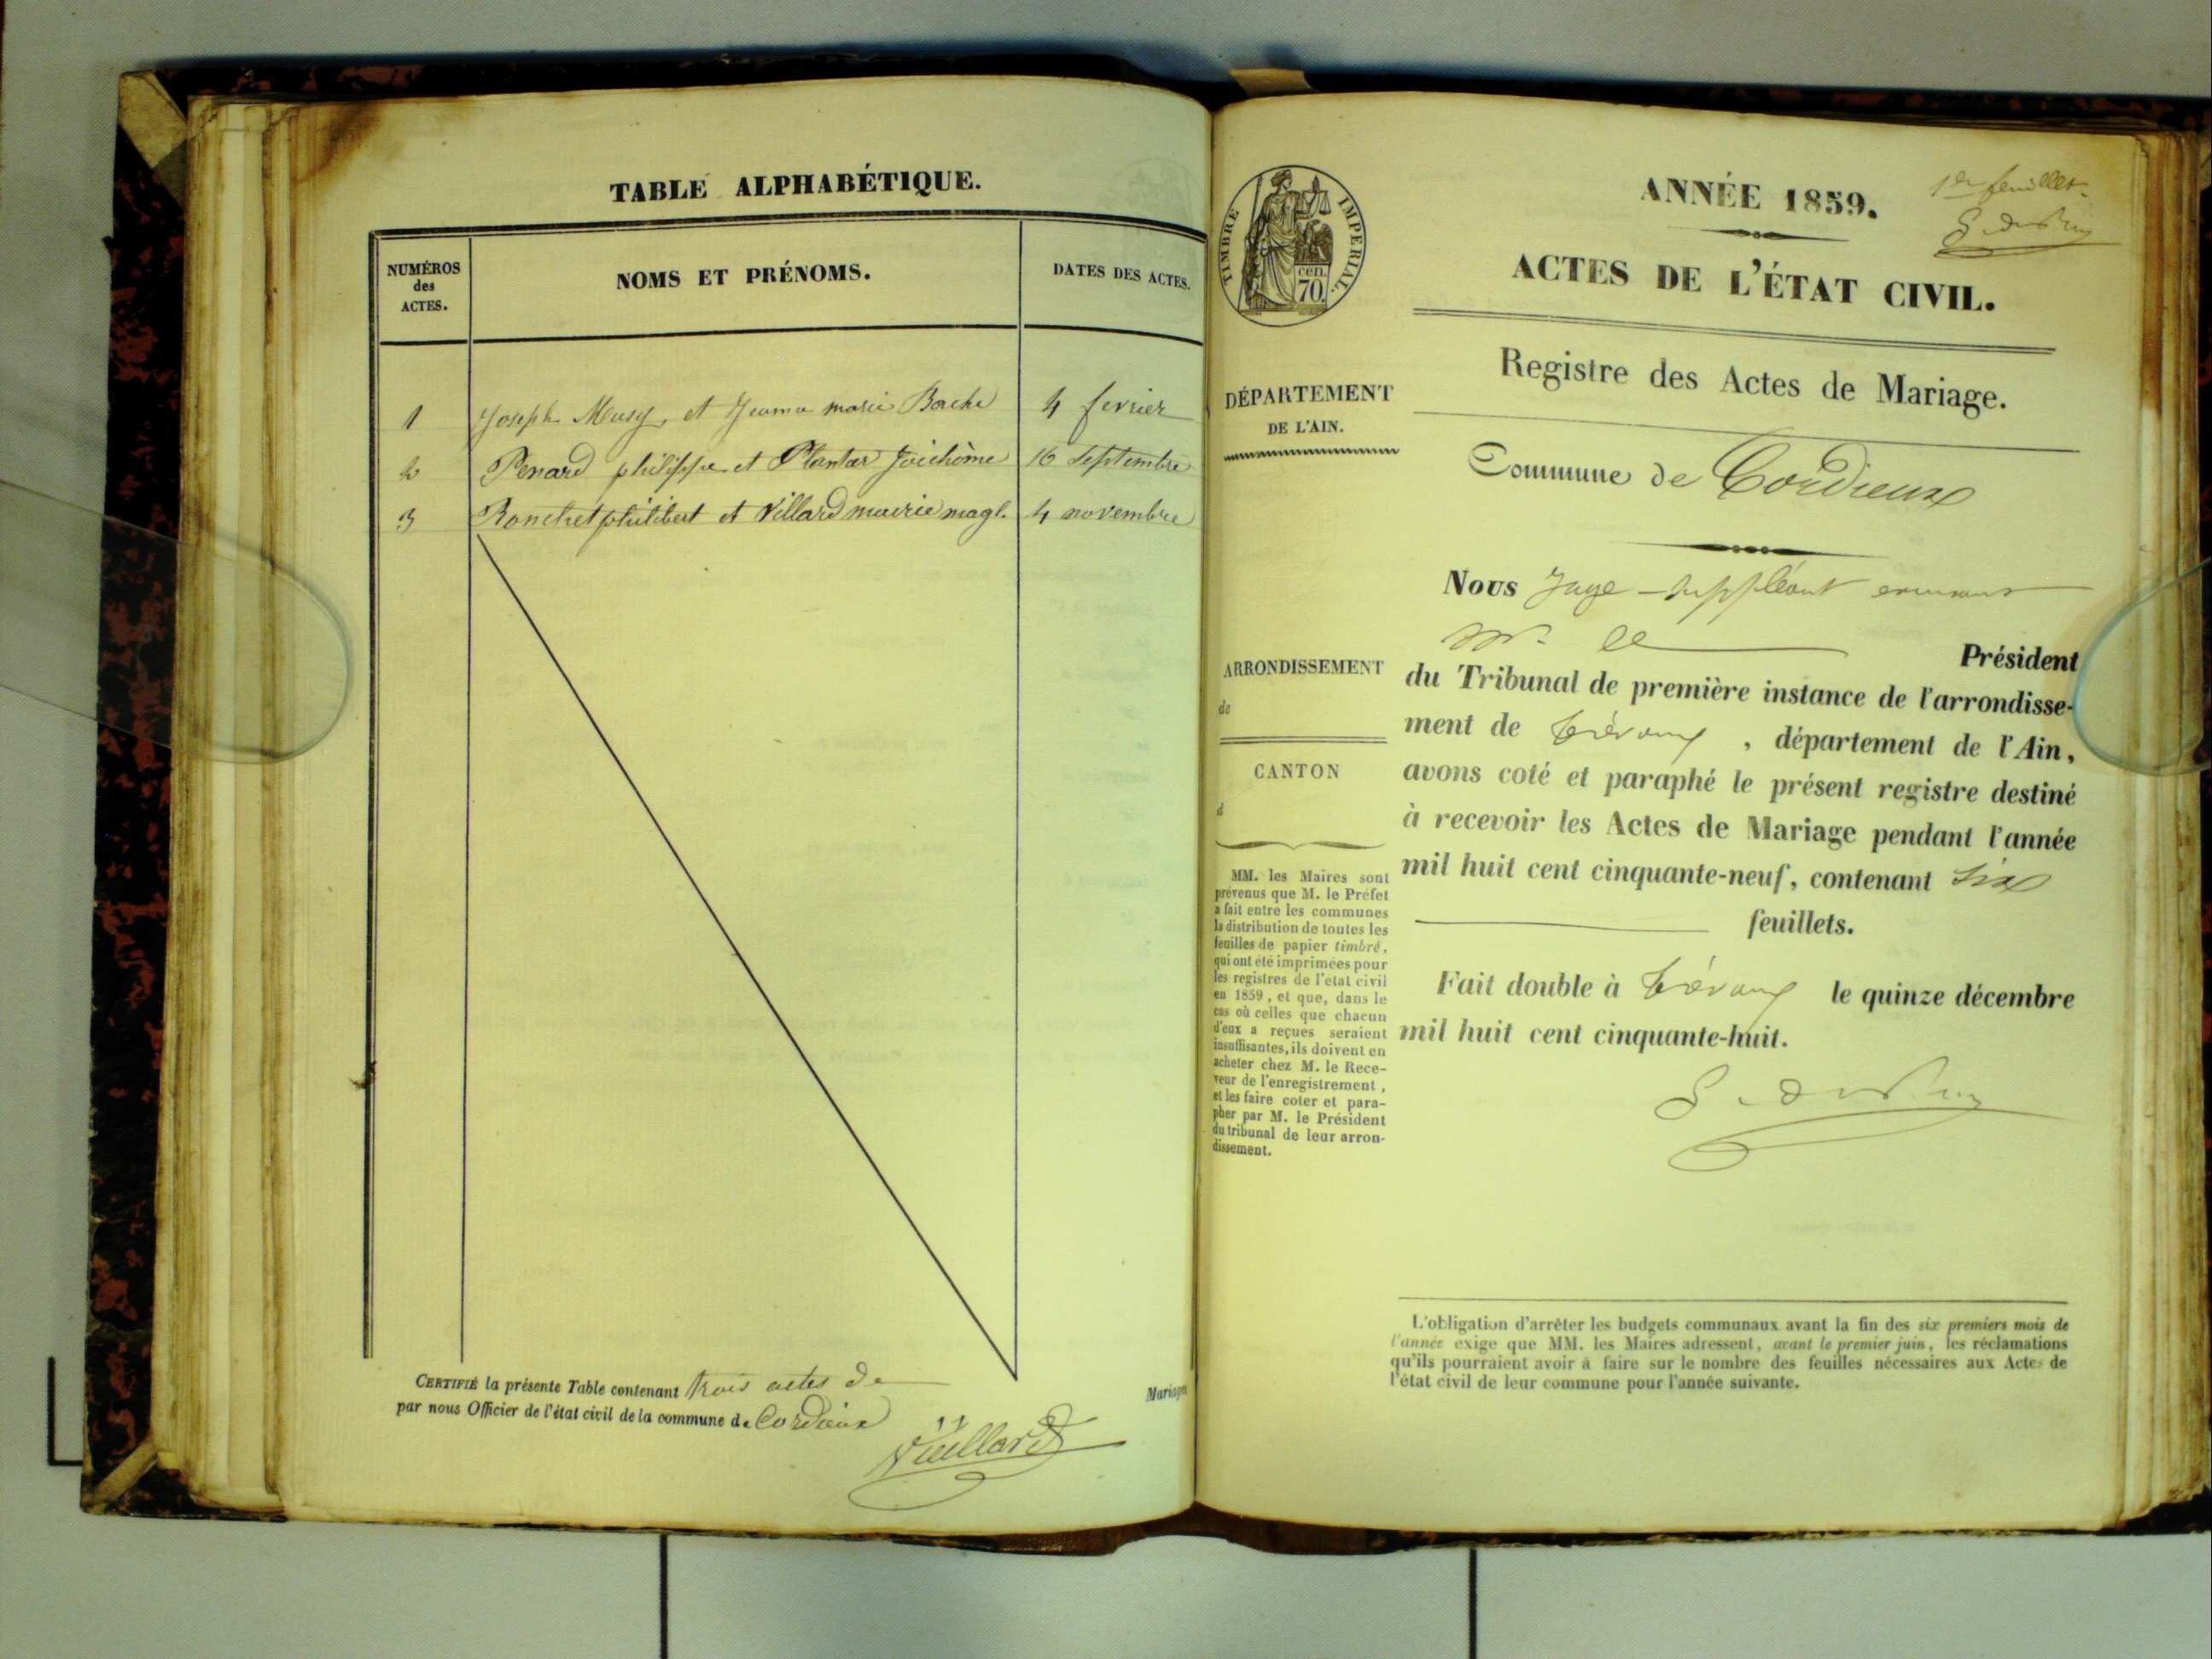 TABLE ALPHABÉTIQUE.
NUMÉROS
des
ACTES.
NOMS ET PRÉNOMS.
DATES DES ACTES.
1 Joseph Musy, et Jeanne marie Bache 4 fevrier
2 Penard philippe et Plantar 16 Septembre
3 Ronchet philibert et Villard marie magl. 4 novembre
CERTIFIÉ la présente Table contenant trois actes de
Mariages
par nous Officier de l'état civil de la commune de Cordieux
Vuillard
TIMBRE IMPERIAL.
cen.
70.
ANNÉE 1859.
1er feuillet
ACTES DE L'ÉTAT CIVIL.
Registre des Actes de Mariage.
DÉPARTEMENT
DE L'AIN.
Commune de Cordieux
Nous Juge-suppléant
Mr le Président
ARRONDISSEMENT
de
CANTON
d
du Tribunal de première instance de l'arrondisse-
ment de Trévoux , département de l'Ain,
avons coté et paraphé le présent registre destiné
à recevoir les Actes de Mariage pendant l'année
mil huit cent cinquante-neuf, contenant six
feuillets.
Fait double à Trévoux le quinze décembre
mil huit cent cinquante-huit.
MM. les Maires sont
prévenus que M. le Préfet
a fait entre les communes
la distribution de toutes les
feuilles de papier timbré,
qui ont été imprimées pour
les registres de l'état civil
en 1859, et que, dans le
cas où celles que chacun
d'eux a reçues seraient
insuffisantes, ils doivent en
acheter chez M. le Rece-
veur de l'enregistrement,
et les faire coter et para-
pher par M. le Président
du tribunal de leur arron-
dissement.
L'obligation d'arrêter les budgets communaux avant la fin des six premiers mois de
l'année exige que MM. les Maires adressent, avant le premier juin, les réclamations
qu'ils pourraient avoir à faire sur le nombre des feuilles nécessaires aux Actes de
l'état civil de leur commune pour l'année suivante.